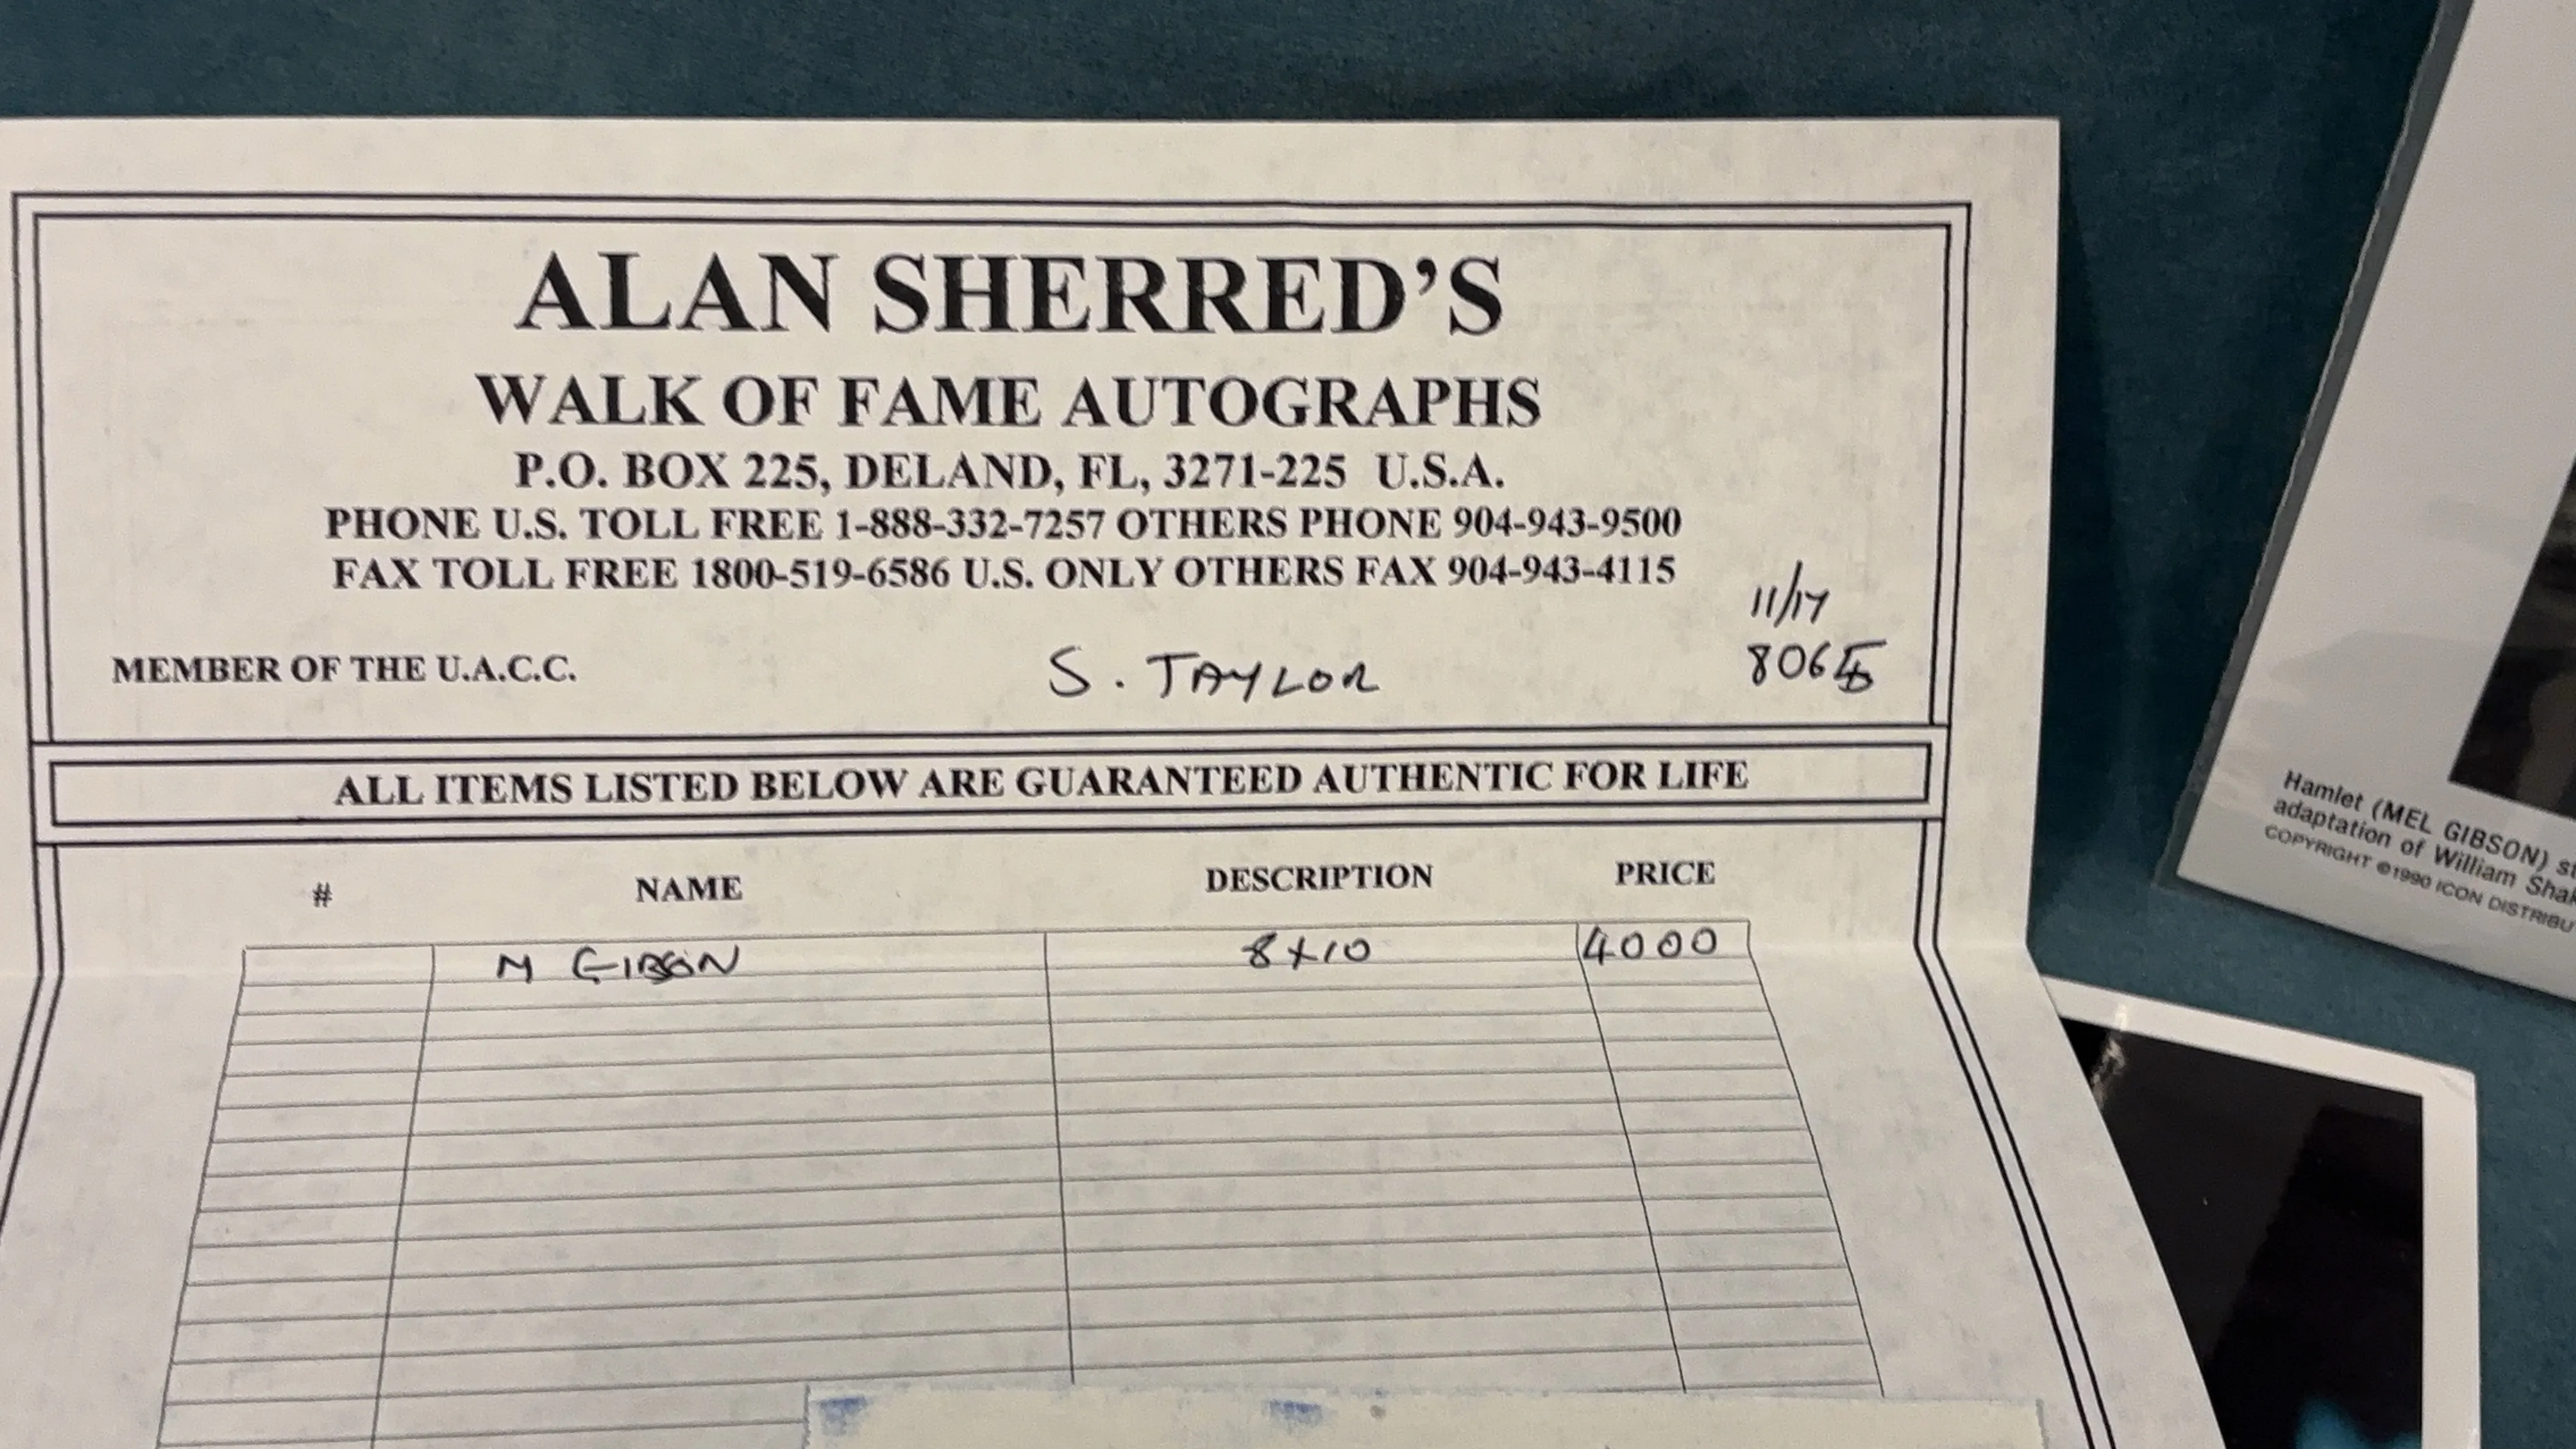 ALAN SHERRED'S
WALK OF FAME AUTOGRAPHS
P.O. BOX 225, DELAND, FL, 3271-225 U.S.A.
PHONE U.S. TOLL FREE 1-888-332-7257 OTHERS PHONE 904-943-9500
FAX TOLL FREE 1800-519-6586 U.S. ONLY OTHERS FAX 904-943-4115
11/17
MEMBER OF THE U.A.C.C. S. TAYLOR
ALL ITEMS LISTED BELOW ARE GUARANTEED AUTHENTIC FOR LIFE
# NAME DESCRIPTION PRICE
M GIBSON 8X10 4000
Hamlet (MEL GIBSON)
adaptation of William
COPYRIGHT ©1990 ICON